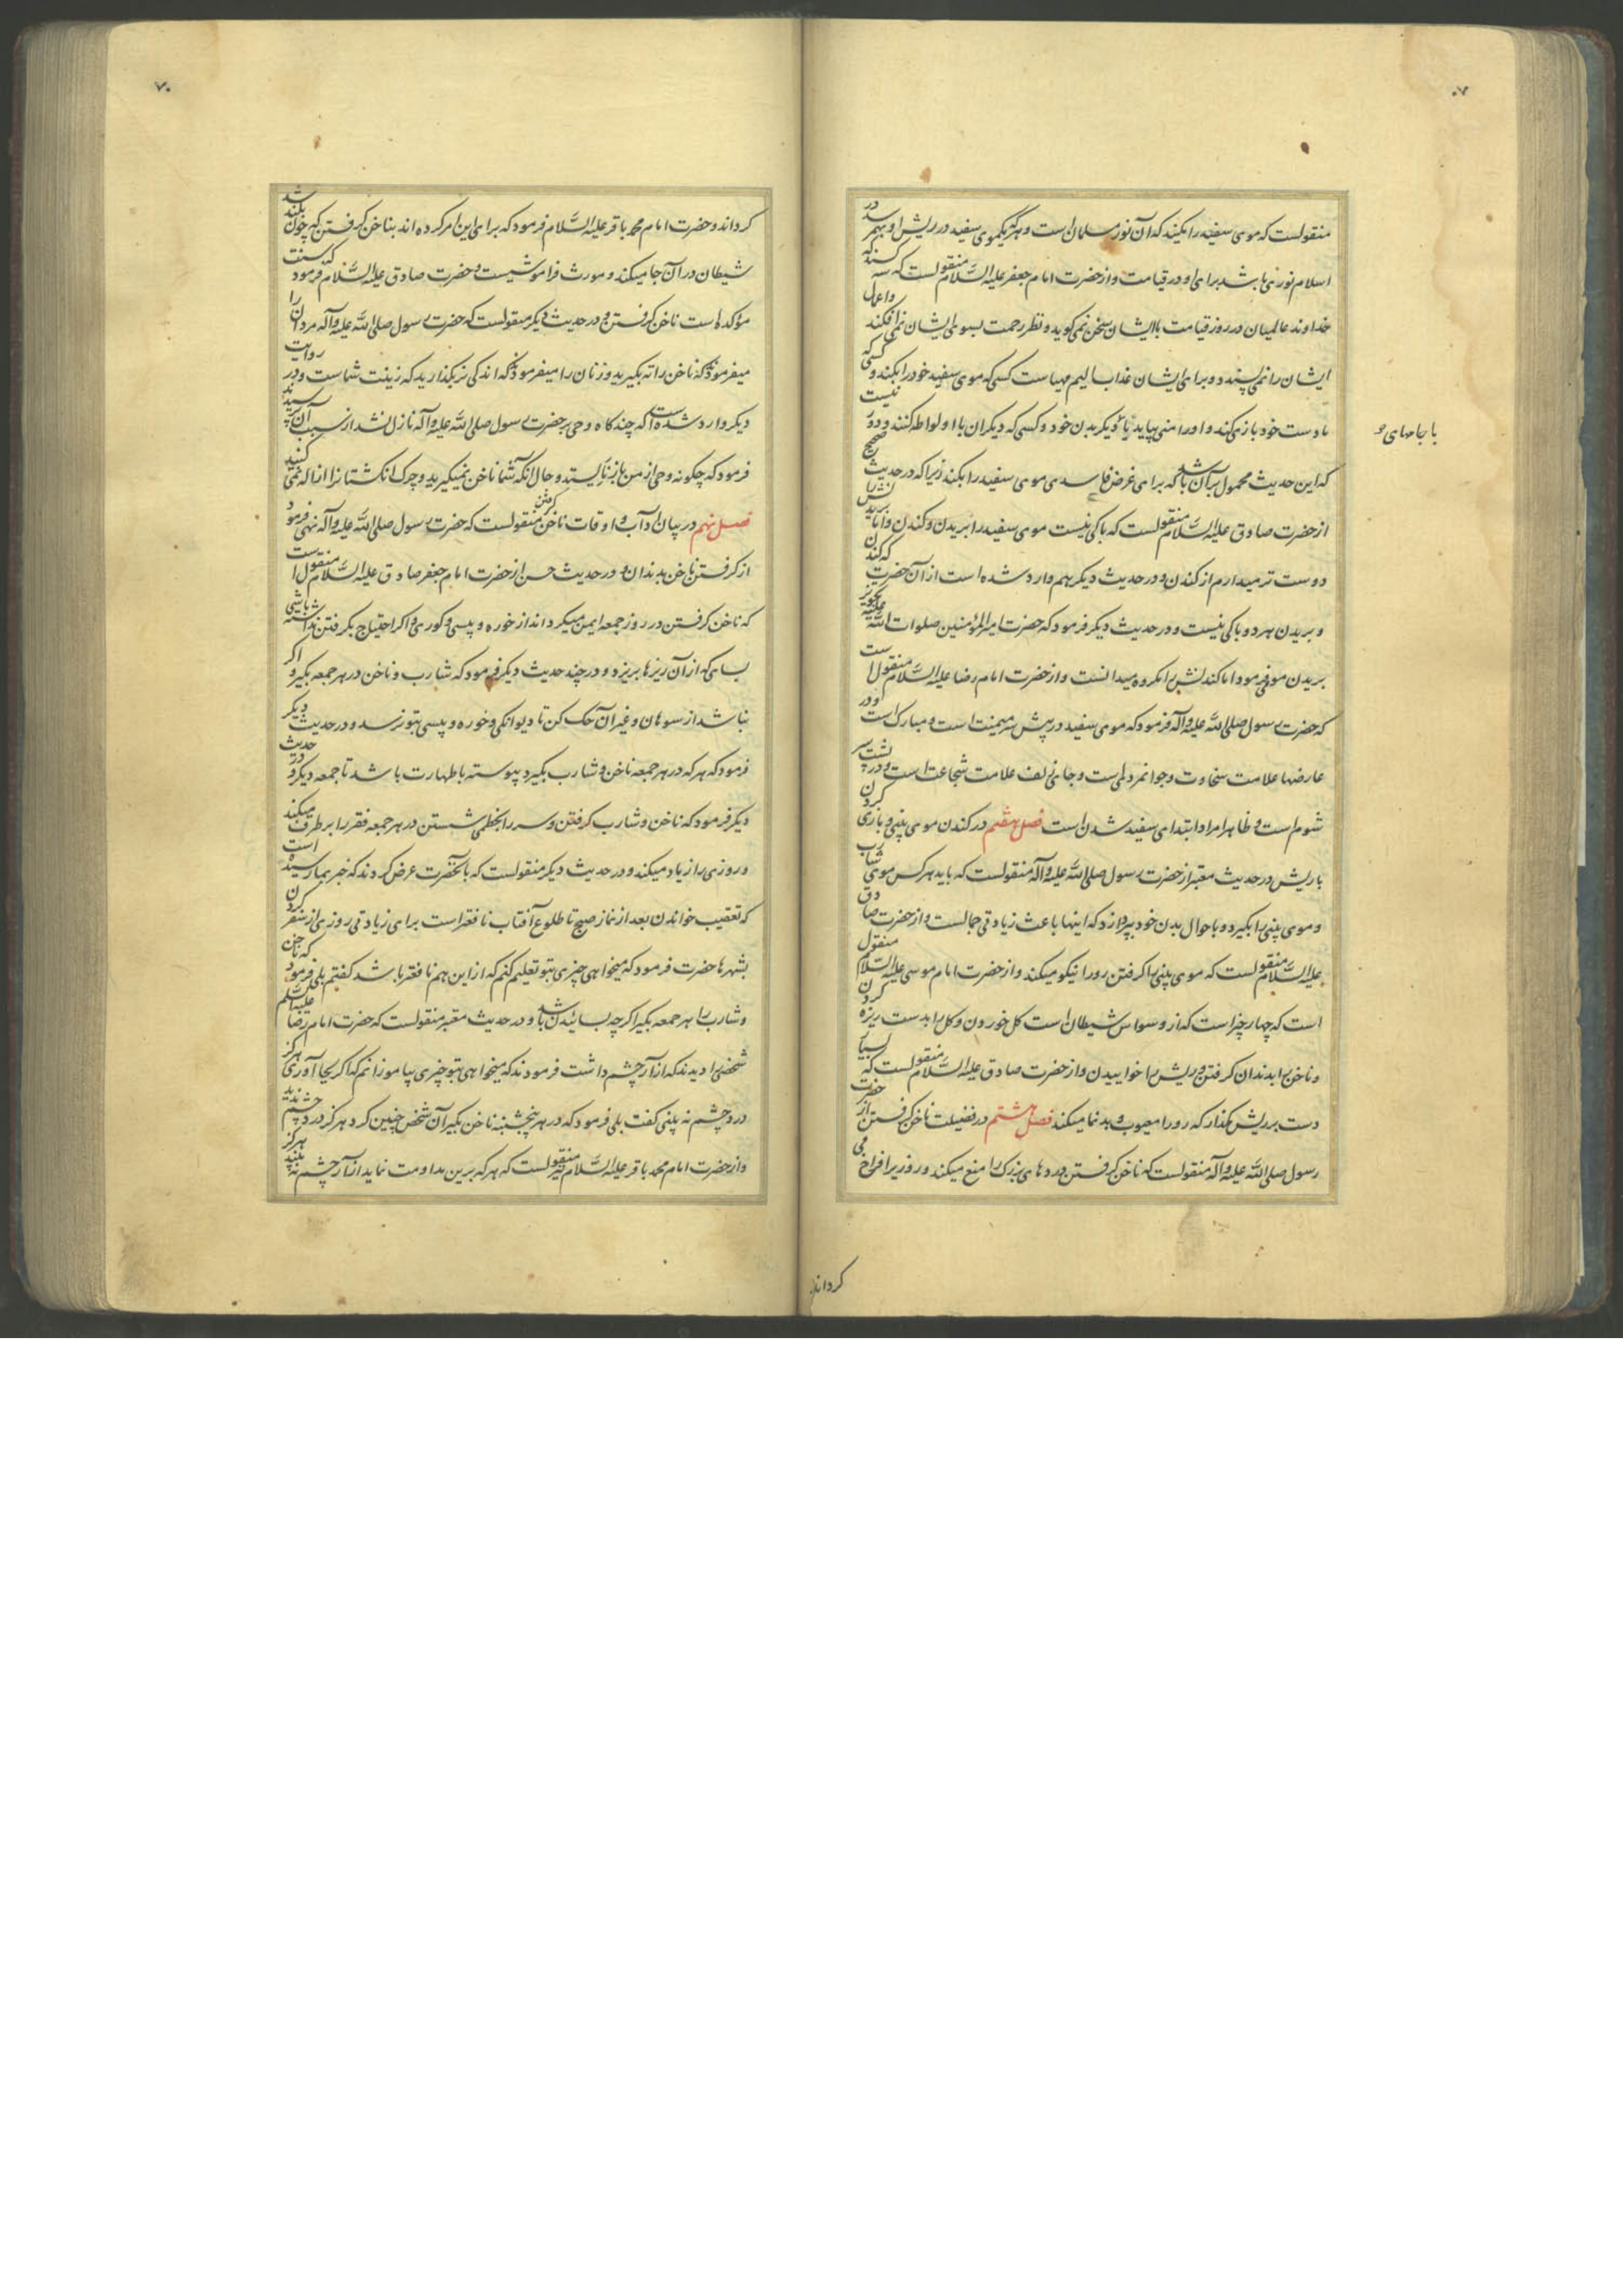 ۷۰
منقولست که موی سفید را مکنید که آن نور مسلمان است و هرکه یکموی سفید در ریش او بهم رسد در
اسلام نوری باشد برای او در قیامت و از حضرت امام جعفر علیه السلام منقولست که سه کسند که
خداوند عالمیان در روز قیامت با ایشان سخن نمی کوید و نظر رحمت بسوی ایشان نمی افکند و اعمال
ایشان را نمی پسندد و برای ایشان عذاب الیم مهیاست کسی که موی سفید خود را بکند و کسی که
با دست خود بازی کند و او را منی بیاید یا بدیکر بدن خود و کسی که دیکران با او لواطه کنند و دور نیست
با جاهای
که این حدیث محمول بر آن باشد که برای غرض فاسدی موی سفید را بکند زیرا که در حدیث صحیح
از حضرت صادق علیه السلام منقولست که باکی نیست موی سفید را بریدن و کندن و اما بریدنش را
دوست تر میدارم از کندن و در حدیث دیکر هم وارد شده است از آن حضرت که کندن
و بریدن هر دو باکی نیست و در حدیث دیکر فرمود که حضرت امیر المؤمنین صلوات الله علیه تجویز
بریدن مو می فرمود اما کندنش را مکروه میدانست و از حضرت امام رضا علیه السلام منقولست
که حضرت رسول صلی الله علیه وآله فرمود که موی سفید در پیش سر میمنت است و مبارک است و در
عارضها علامت سخاوت و جوانمردیست و جای زلف علامت شجاعت است و در پشت سر
شوم است و ظاهرا مراد ابتدای سفید شدن است فصل هفتم در کندن موی بینی و بازی کردن
با ریش در حدیث معتبر از حضرت رسول صلی الله علیه وآله منقولست که باید هر کس موی شارب
و موی بینی را بکیرد و باحوال بدن خود بپردازد که اینها باعث زیادتی جمالست و از حضرت صادق
علیه السلام منقولست که موی بینی را کرفتن رو را نیکو میکند و از حضرت امام موسی علیه السلام منقول
است که چهار چیز است که از وسواس شیطان است کل خوردن و کل را بدست ریزه کردن
و ناخن را بدندان کرفتن و ریش را خواییدن و از حضرت صادق علیه السلام منقولست که بسیار
دست بر ریش مکذار که رو را معیوب و بدنما میکند فصل هشتم در فضیلت ناخن کرفتن از حضرت
رسول صلی الله علیه وآله منقولست که ناخن کرفتن دردهای بزرک را منع میکند و روزی را فراخ می
کرداند
۷۰
کرداند و حضرت امام محمد باقر علیه السلام فرمود که برای این امر کرده اند بناخن کرفتن که چون بلند شد
شیطان در آن جا میکند و مورث فراموشیست و حضرت صادق علیه السلام فرمود که سنت
مؤکد است ناخن کرفتن و در حدیث دیکر منقولست که حضرت رسول صلی الله علیه وآله مردان را
میفرمود که ناخن را ته بکیرید و زنان را میفرمود که اندکی بکذارید که زینت شماست و در روایت
دیکر وارد شده است که چند کاه وحی بر حضرت رسول صلی الله علیه وآله نازل نشد از سبب آن پرسیدند
فرمود که چکونه وحی از من باز نایستد و حال آنکه شما ناخن نمیکیرید و چرک انکشتانرا ازاله نمی کنید
فصل نهم در بیان آداب و اوقات ناخن کرفتن منقولست که حضرت رسول صلی الله علیه وآله نهی فرمود
از کرفتن ناخن بدندان و در حدیث حسن از حضرت امام جعفر صادق علیه السلام منقولست
که ناخن کرفتن در روز جمعه ایمن میکرداند از خوره و پیسی و کوری و اکر احتیاج بکرفتن نداشته باشی
بسای که از آن ریزها بریزد و در چند حدیث دیکر فرمود که شارب و ناخن در هر جمعه بکیر و اکر
نباشد از سوهان و غیر آن حک کن تا دیوانکی و خوره و پیسی بتو نرسد و در حدیث دیکر
فرمود که هر که در هر جمعه ناخن و شارب بکیرد پیوسته با طهارت باشد تا جمعه دیکر و در حدیث
دیکر فرمود که ناخن و شارب کرفتن و سر را بخطمی شستن در هر جمعه فقر را برطرف میکند
و روزی را زیاد میکند و در حدیث دیکر منقولست که بآنحضرت عرض کردند که خبر بما رسیده است
که تعقیب خواندن بعد از نماز صبح تا طلوع آفتاب نافعتر است برای زیادتی روزی از سفر کردن
بشهرها حضرت فرمود که میخواهی چیزی بتو تعلیم کنم که از این هم نافعتر باشد کفتم بلی فرمود که ناخن
و شارب را هر جمعه بکیر اکرچه بسائیدن باشد و در حدیث معتبر منقولست که حضرت امام رضا علیه السلام
شخصی را دیدند که آزار چشم داشت فرمودند که میخواهی بتو چیزی بیاموزانم که اکر بجا آوری هرکز
درد چشم نه بینی کفت بلی فرمود که در هر پنجشنبه ناخن بکیر آن شخص چنین کرد هرکز درد چشم ندید
و از حضرت امام محمد باقر علیه السلام منقولست که هر که برین مداومت نماید آزار چشم نه بیند هرکز